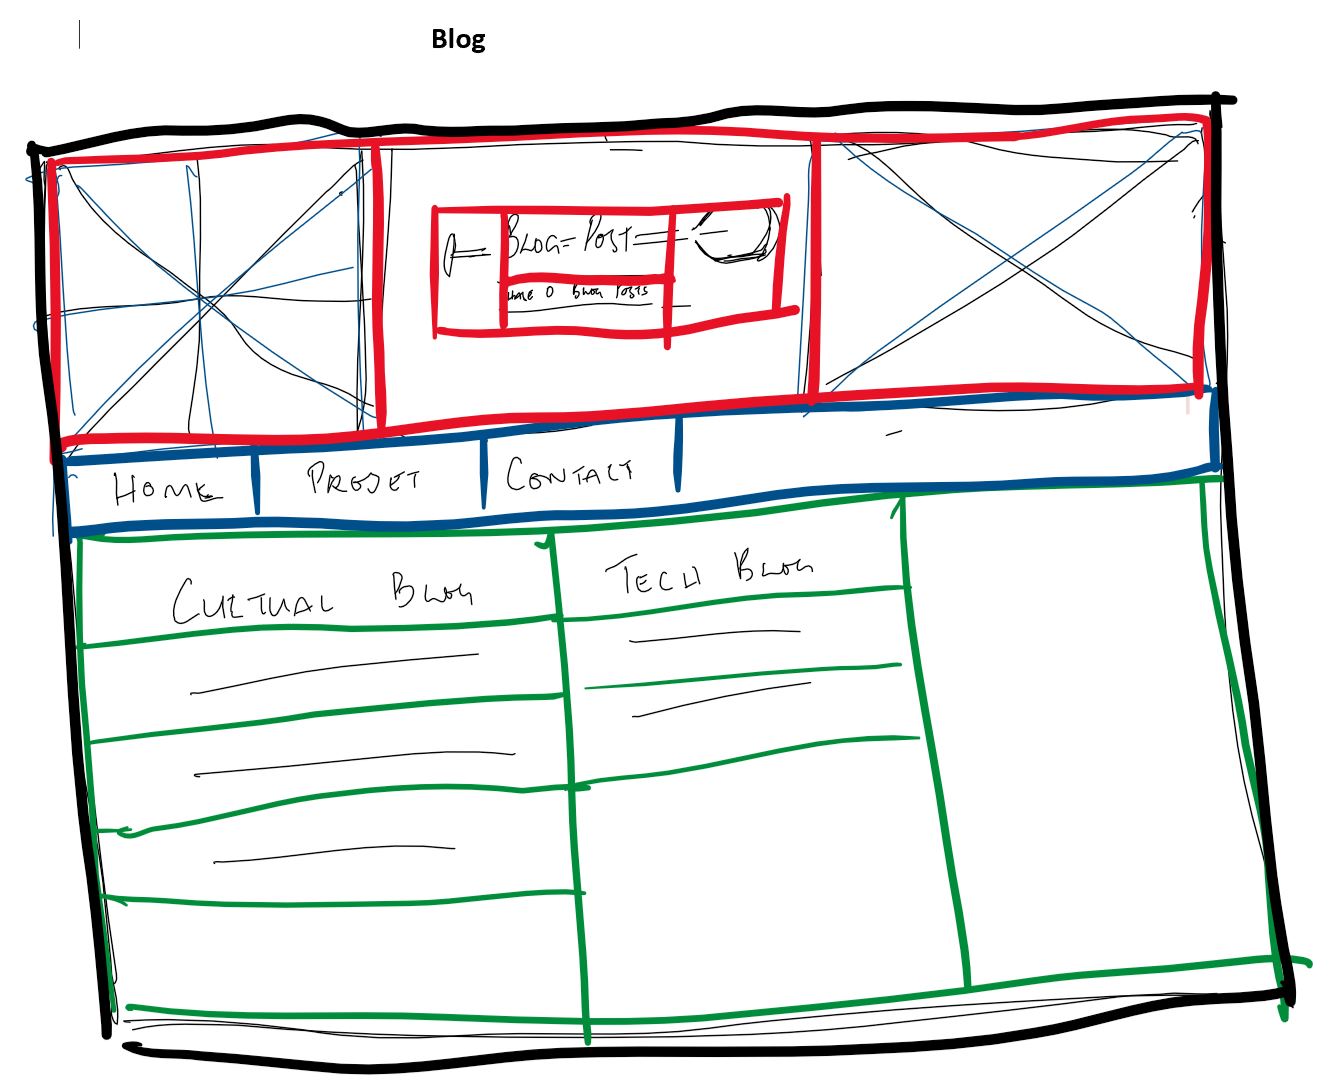 Blog
BLOG=POST
O BLOG POSTS
HOME
PROJET
CONTACT
CULTUAL BLOG
TECH BLOG